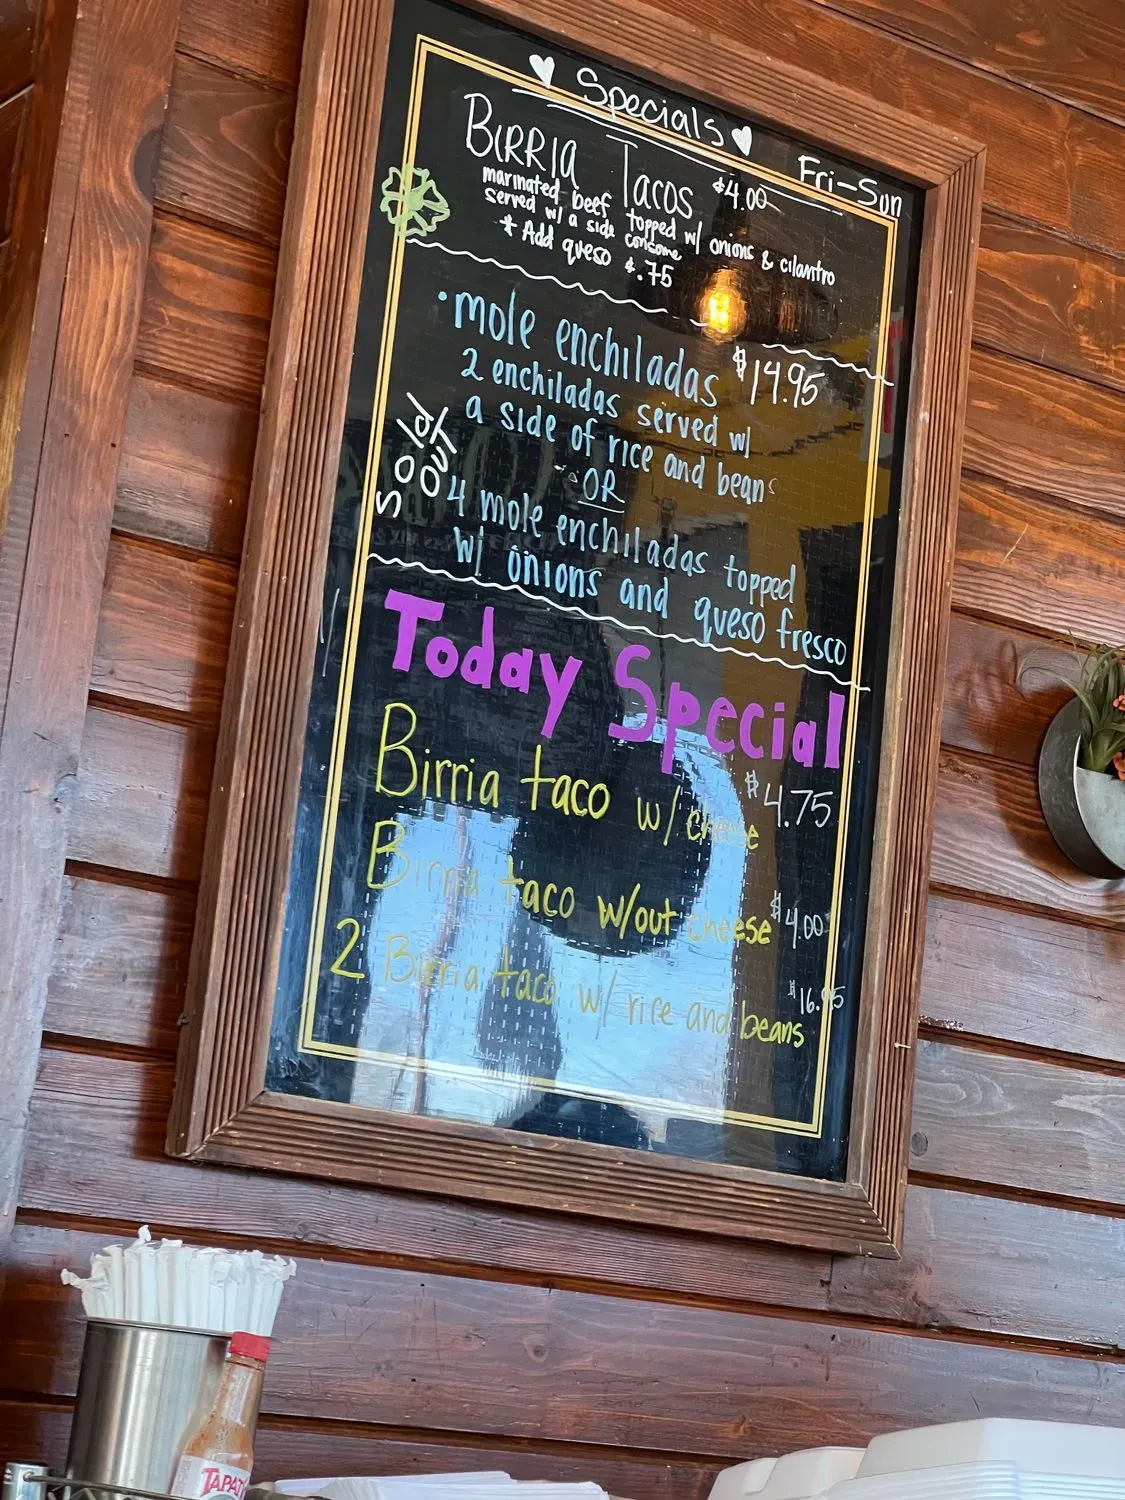 ♥ Specials ♥
Fri-Sun
BIRRIA TACOS $4.00
marinated beef topped w/ onions & cilantro
served w/ a side consome
* Add queso $.75
• mole enchiladas $14.95
2 enchiladas served w/
a side of rice and beans
OR
4 mole enchiladas topped
w/ onions and queso fresco
Sold
OUT
Today Special
Birria taco w/ cheese $4.75
Birria taco w/out cheese $4.00
2 Birria taco w/ rice and beans $16.95
TAPATI